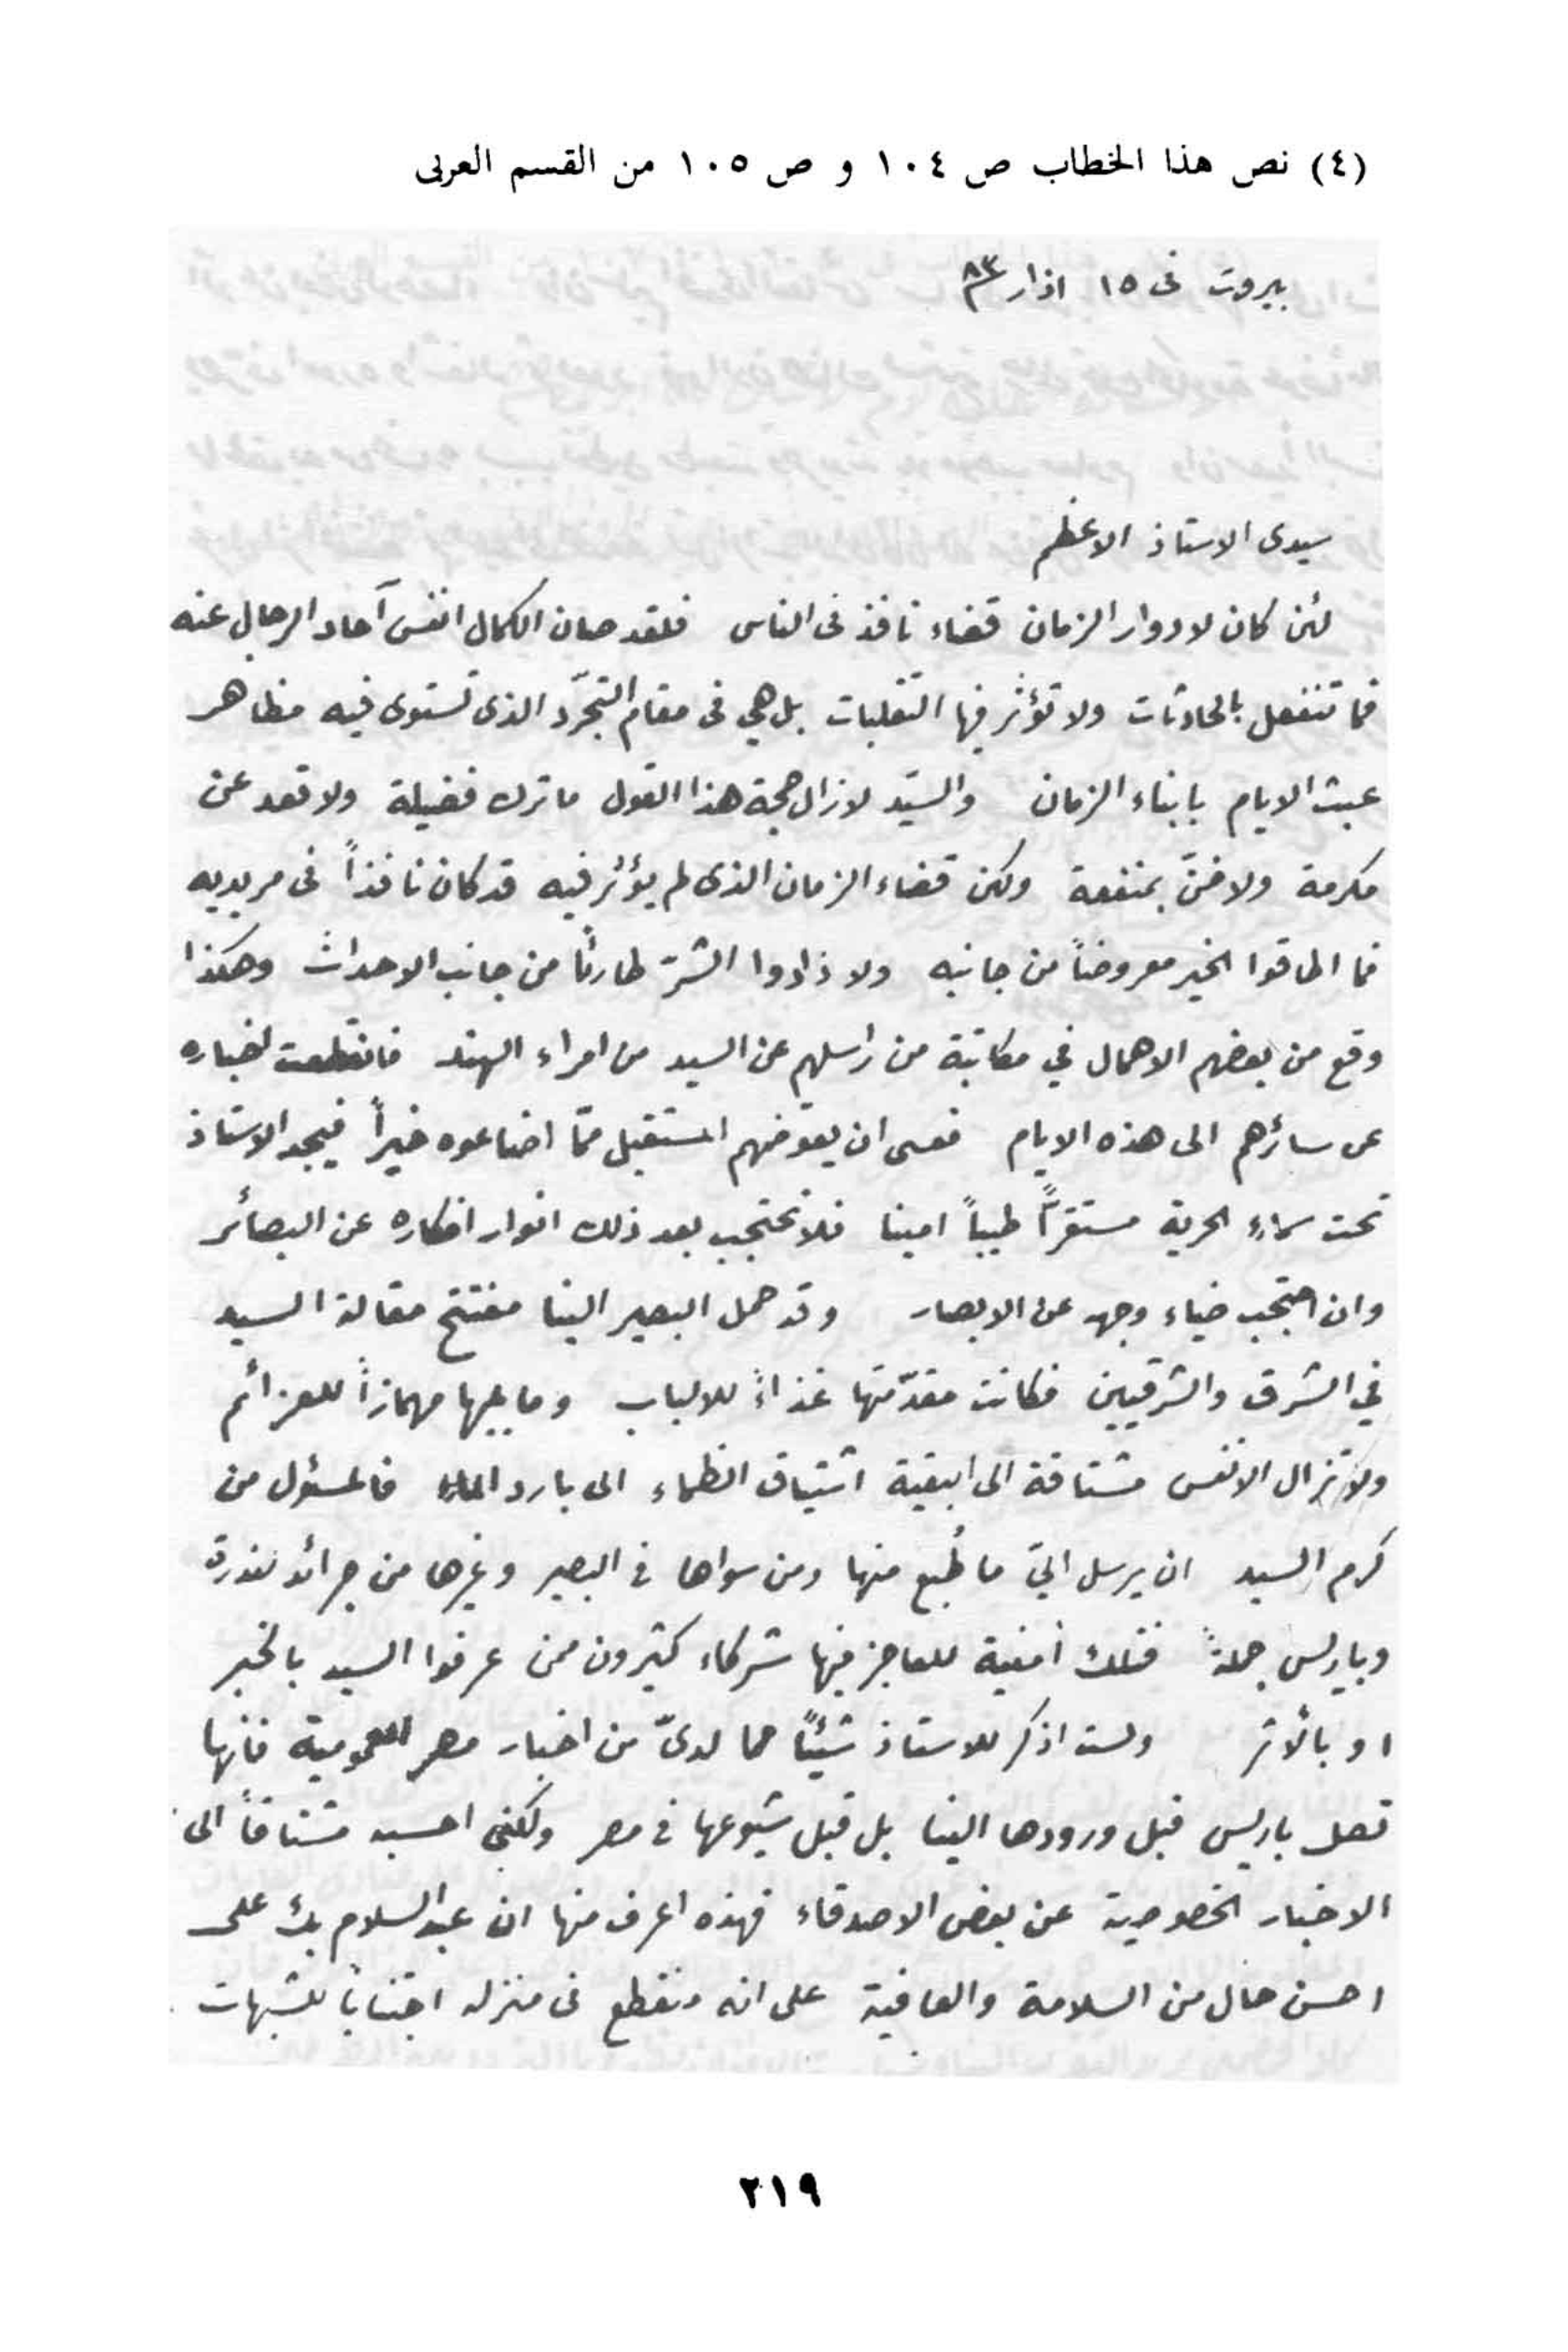 (٤) نص هذا الخطاب ص ١٠٤ و ص ١٠٥ من القسم العربى
بيروت فى ١٥ اذار ٨٣
سيدى الاستاذ الاعظم
لئن كان لادوار الزمان قضاء نافذ فى الناس فلقد صان الكمال انفس آحاد الرجال عنه
فما تنفعل بالحادثات ولا تؤثر فيها التقلبات بل هي فى مقام التجرّد الذى تستوى فيه مظاهر
عبث الايام بابناء الزمان والسيّد لازال حجة هذا القول ما ترك فضيلة ولا قعد عن
مكرمة ولا ضنّ بمنفعة ولكن قضاء الزمان الذى لم يؤثر فيه قد كان نافذاً فى مريديه
فما اطاقوا الخير معروضاً من جانبه ولا ذادوا الشرّ طارئاً من جانب الاحداث وهكذا
وقع من بعضهم الاهمال في مكاتبة من راسلهم عن السيد من امراء الهند فانقطعت اخباره
عن سائرهم الى هذه الايام فعسى ان يعوضهم المستقبل ممّا اضاعوه خيراً فيجد الاستاذ
تحت سماء الحرية مستقرًّا طيباً امينا فلا تحتجب بعد ذلك انوار افكاره عن البصائر
وان احتجب ضياء وجهه عن الابصار وقد حمل البصير الينا مفتتح مقالة السيد
في الشرق والشرقيين فكانت مقدّمتها غذاءً للالباب وما يليها مهمازاً للعزائم
ولا تزال الانفس مشتاقة الى البقية اشتياق الظماء الى بارد الماء فالمسئول من
كرم السيد ان يرسل اليّ ما طُبع منها ومن سواها فى البصير وغيرها من جرائد لندرة
وباريس جملةً فتلك امنية للعاجز فيها شركاء كثيرون ممن عرفوا السيد بالخبر
او بالأثر ولست اذكر للاستاذ شيئاً مما لدىّ من اخبار مصر العمومية فانها
تصل باريس قبل ورودها الينا بل قبل شيوعها فى مصر ولكنى احسبه مشتاقاً الى
الاخبار الخصوصية عن بعض الاصدقاء فهذه اعرف منها ان عبد السلام بك على
احسن حال من السلامة والعافية على انه منقطع فى منزله اجتناباً للشبهات
٢١٩